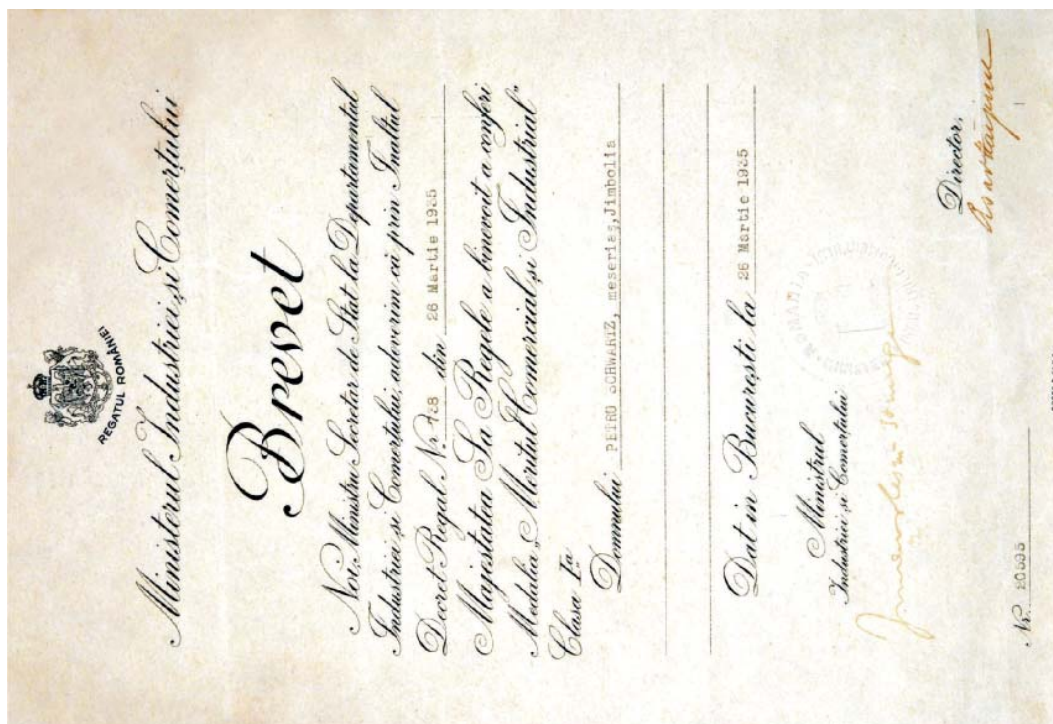 REGATUL ROMÂNIEI
Ministerul Industriei și Comerțului
Brevet
Noi, Ministru Secretar de Stat la Departamentul
Industriei și Comerțului, adeverim că prin Inaltul
Decret Regal Nr. 788 din 26 Martie 1935
Majestatea Sa Regele a binevoit a conferi
Medalia „Meritul Comercial și Industrial”
Clasa I-a
Domnului PETRO SCHWARTZ, meseriaș, Jimbolia
Dat în București la 26 Martie 1935
Ministrul
Industriei și Comerțului
Director,
Nr.